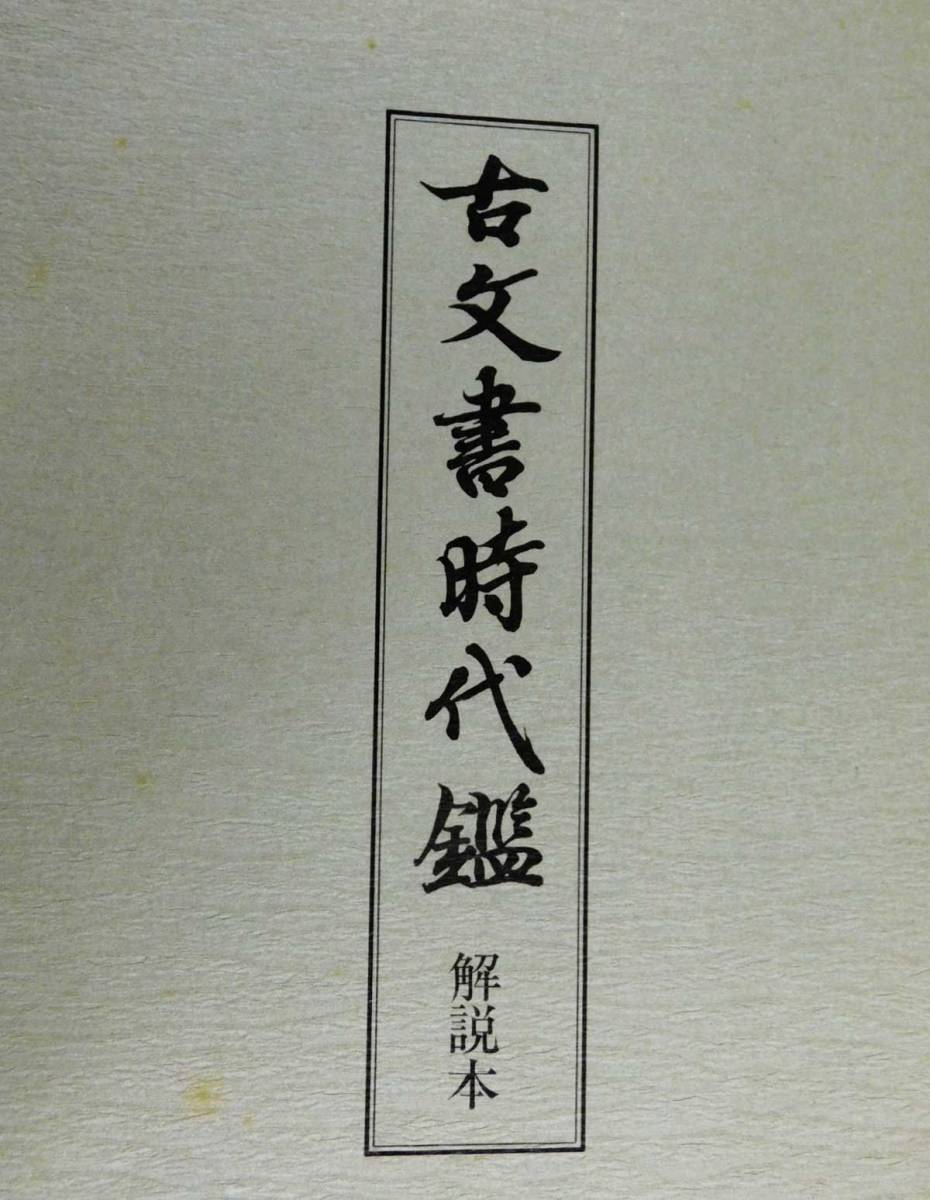 古文書時代鑑 解説本